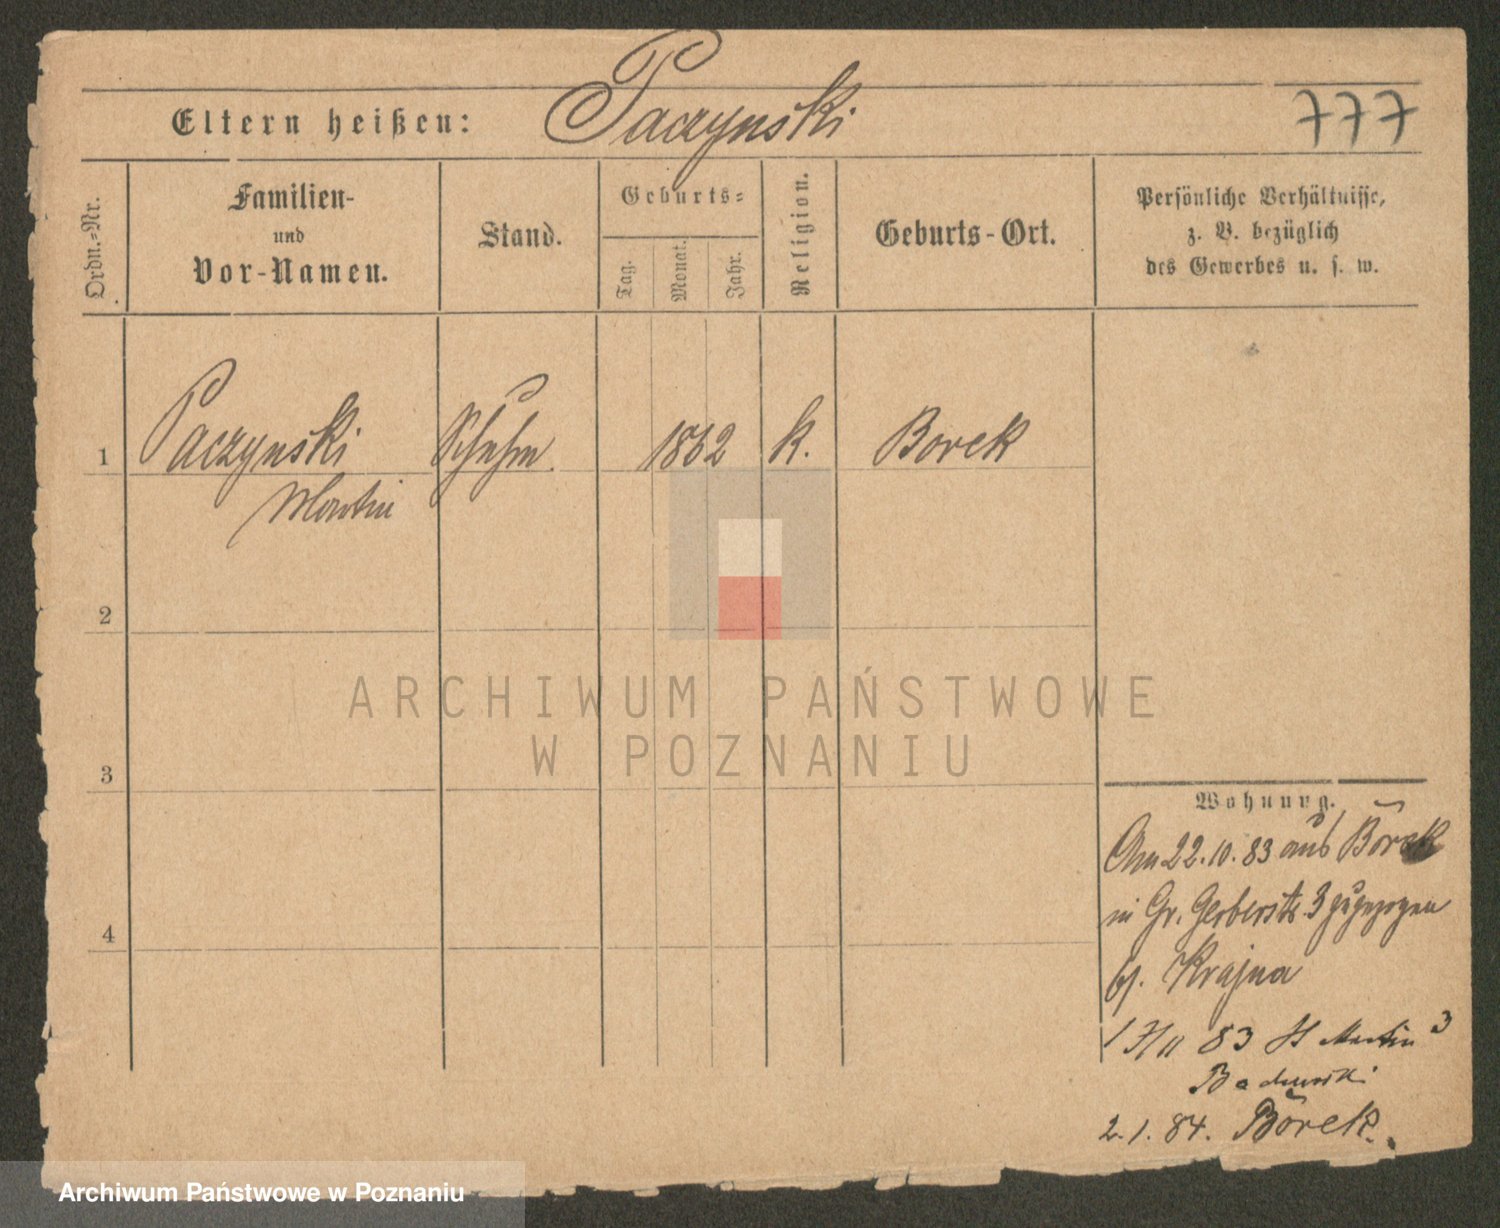 Eltern heißen: Paczynski
777
Ordn.-Nr.
Familien-
und
Vor-Namen.
Stand.
Geburts-
Tag.
Monat.
Jahr.
Religion.
Geburts-Ort.
Persönliche Verhältnisse,
z. B. bezüglich
des Gewerbes u. s. w.
1 Paczynski Schuhm 1862 k. Borek
Martin
2
3
4
ARCHIWUM PAŃSTWOWE
W POZNANIU
Wohnung.
Am 22.10.83 aus Borek
in Gr. Gerberstr. 3 zugezogen
bj. Krajna
83 St Martin 3
2.1.84. Borek.
Archiwum Państwowe w Poznaniu